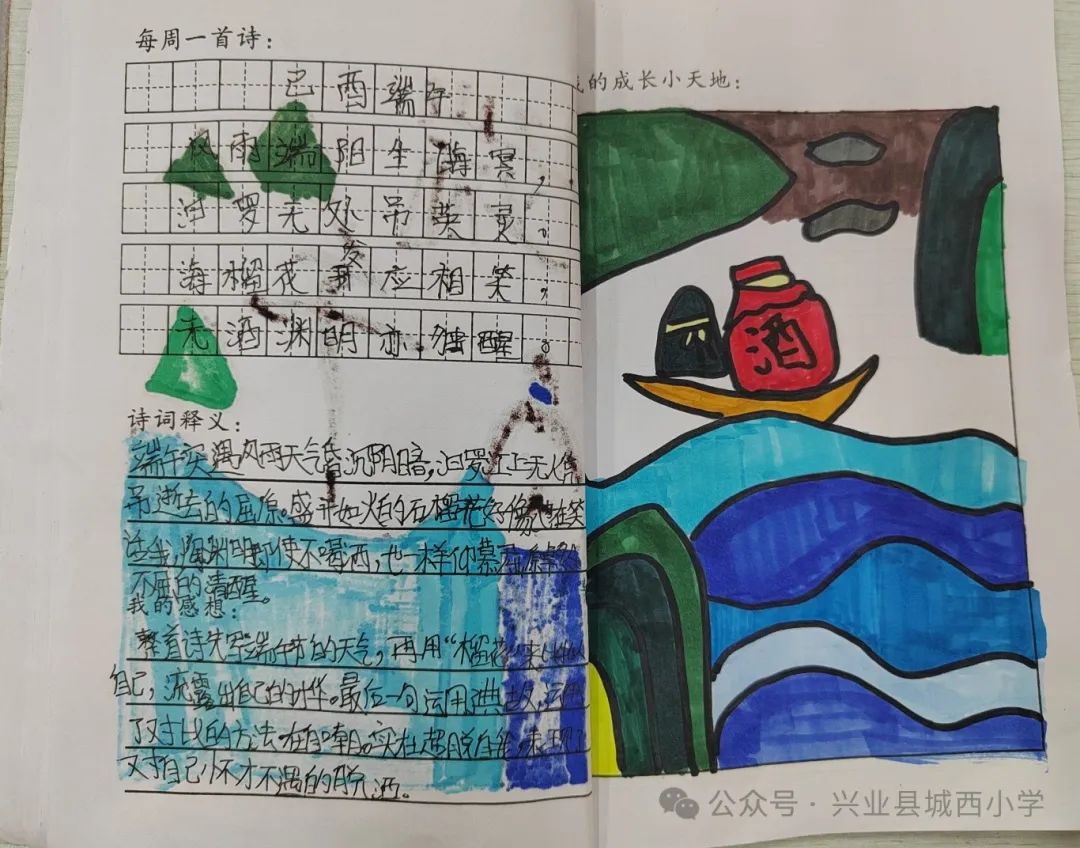 每周一首诗：
己酉端午
风雨端阳生晦冥，
汨罗无处吊英灵。
海榴花发应相笑，
无酒渊明亦独醒。
诗词释义：
端午突遇风雨天气昏沉阴暗，汨罗江上无人
吊逝去的屈原。盛开如火的石榴花好像也在笑
陶渊明即使不喝酒，也一样仰慕屈原
不屈的清醒。
我的感想：
整首诗先写端午节的天气，再用“榴花”来
自己，流露出自己的才华。最后一句运用典故，
了对比的方法。在自嘲。实在超脱自
又对自己怀才不遇的脱洒。
的成长小天地：
酒
公众号·兴业县城西小学